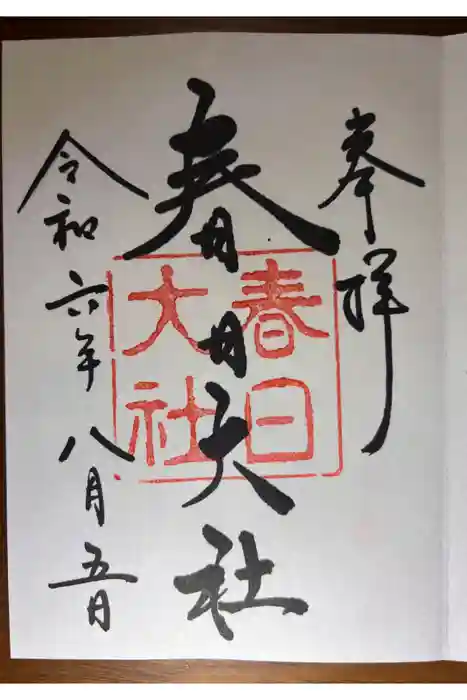 奉拝
春日大社
春日
大社
令和六年八月五日